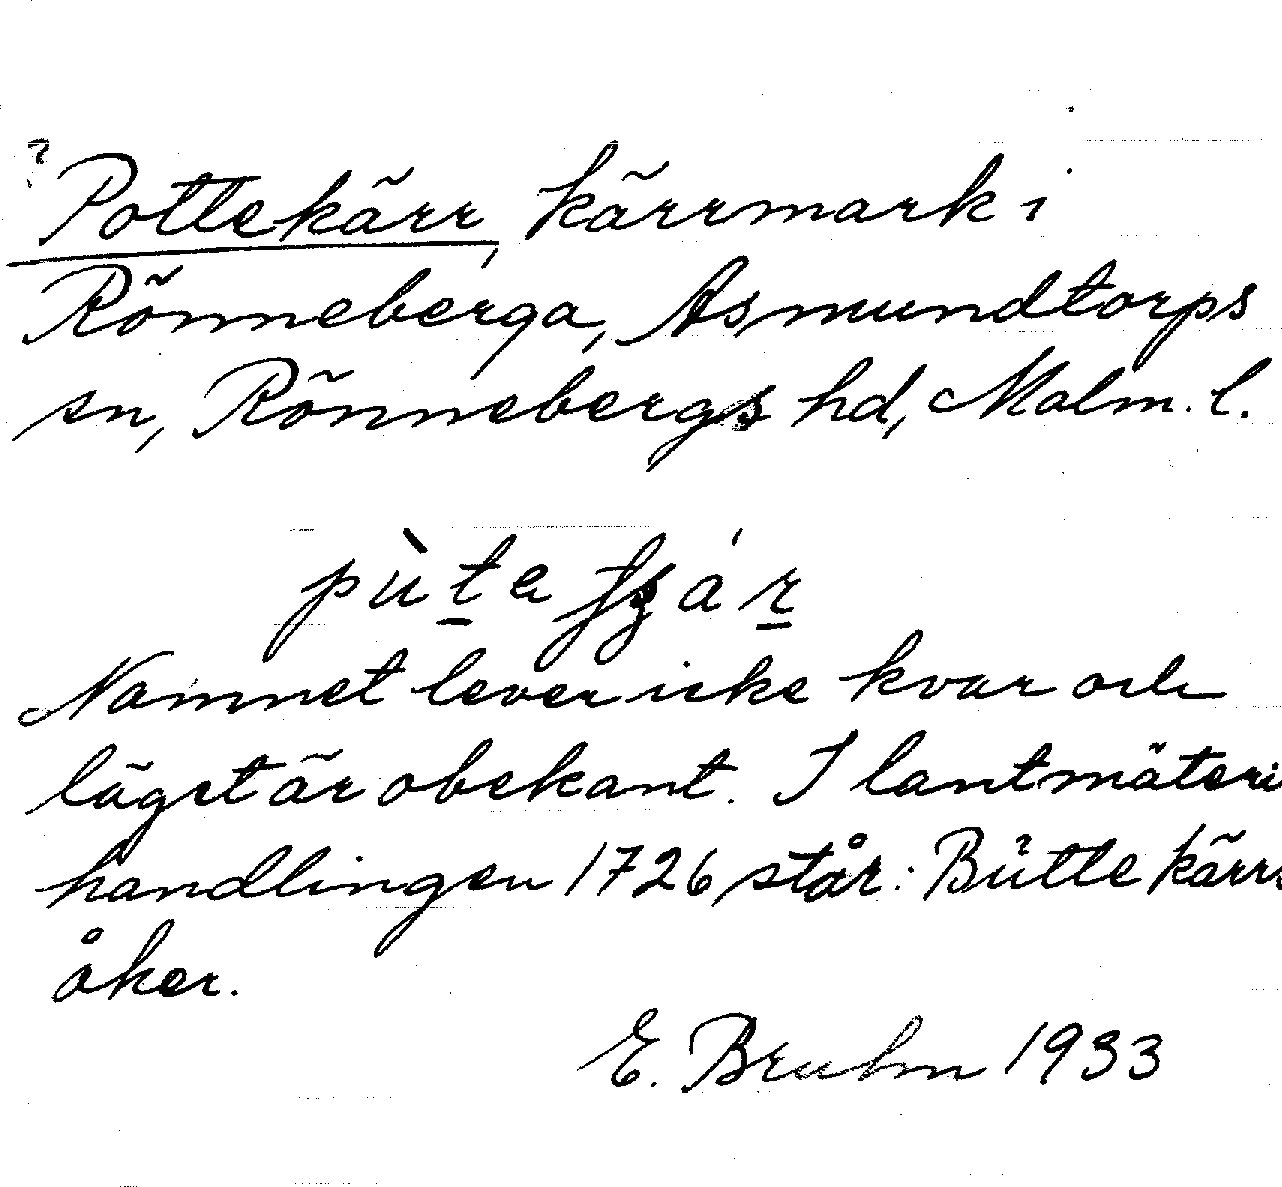 ? Pottekärr, kärrmark i
Rönneberga, Asmundtorps
sn, Rönnebergs hd, Malm. l.
Namnet lever icke kvar och
läget är obekant. I lantmäteri
handlingen 1726 står: Bütte kärrs
åker.
E. Bruhn 1933